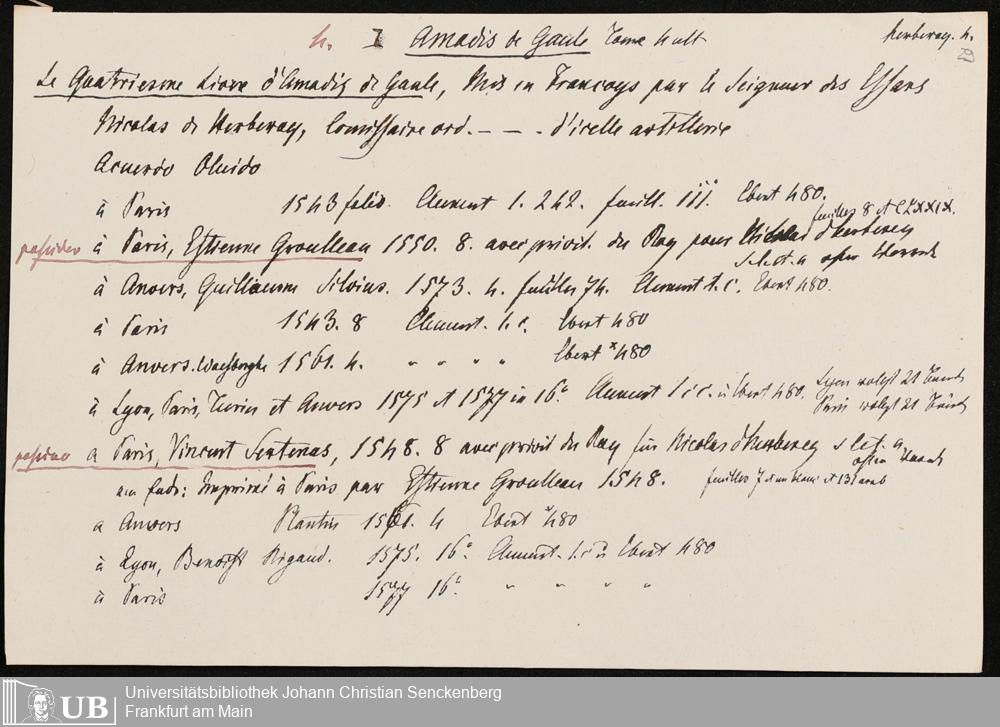 4. I Amadis de Gaule Tome 4
Herberay. 4.
Le Quatriesme Livre d'Amadis de Gaule, Mis en Francoys par le Seigneur des Essars
Nicolas de Herberay, Comissaire ord. - - - d'icelle artillerie
Acuerdo Oluido
à Paris 1543 folio. Clement 1. 242. feuill. iii. Ebert 480.
feuilles 8 et CLXXIX.
possideo à Paris, Estienne Groulleau 1550. 8. avec privil. du Roy pour Nicolas d'Herberay
à Anvers, Guillaume Silvius. 1573. 4. feuilles 74. Clement l. c. Ebert 480.
à Paris 1543. 8 Clement. l. c. Ebert 480
à Anvers. Waesberghe 1561. 4. " " " " Ebert * 480
à Lyon, Paris, Turin et Anvers 1575 et 1577 in 16° Clement l. c. u Ebert 480.
Lyon 21
Paris 21
possideo a Paris, Vincent Sertenas, 1548. 8 avec privil du Roy für Nicolas d'Herberay
am Ende: Imprimé à Paris par Estienne Groulleau 1548. feuilles 7 et un blanc et
a Anvers Plantin 1561. 4 Ebert * 480
à Lyon, Benoist Rigaud. 1575. 16° Clement. l. c. u Ebert 480
à Paris 1577 16° " " " "
UB
Universitätsbibliothek Johann Christian Senckenberg
Frankfurt am Main